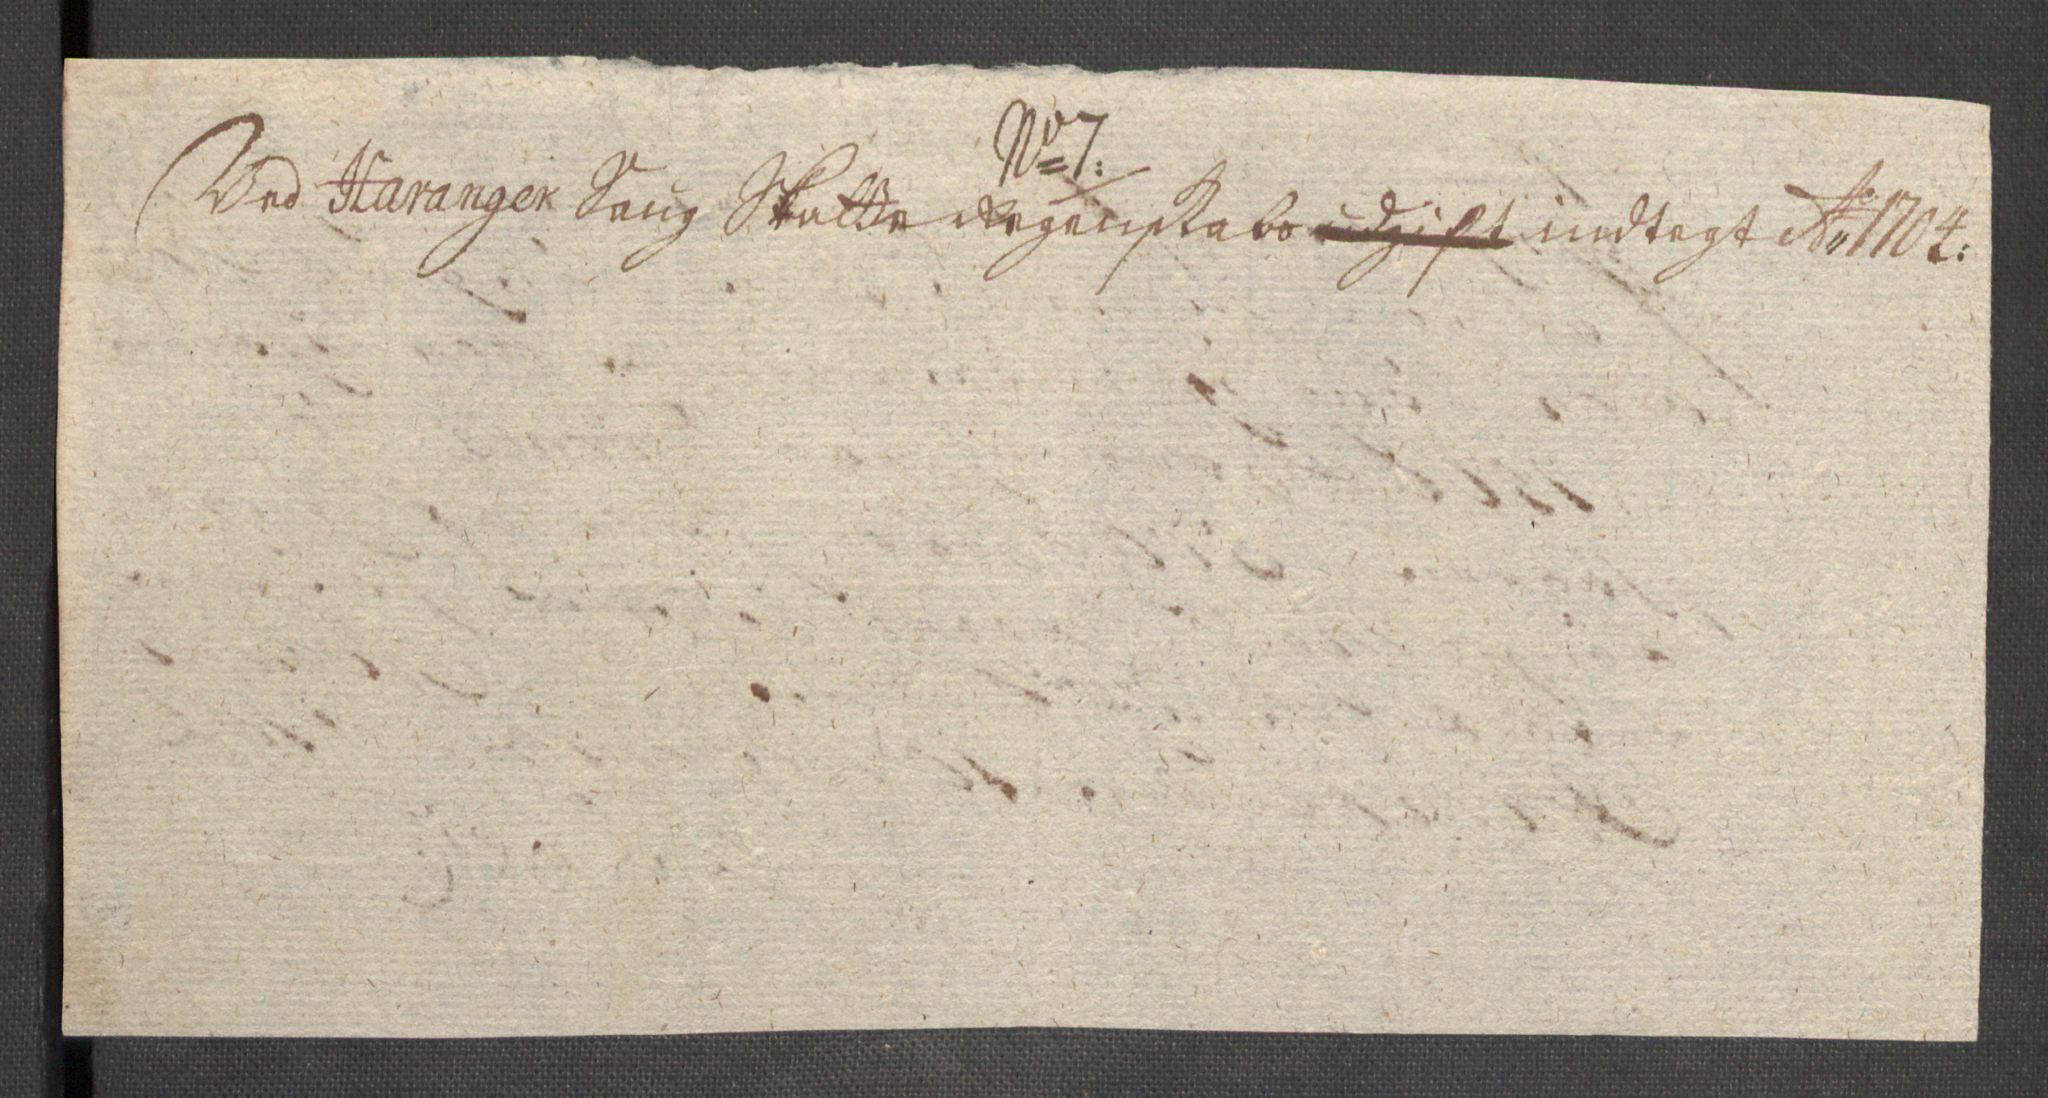 No 7:
Ved Haranger Leug Skatte Regenskabs udgift indtegt Ao 1704: